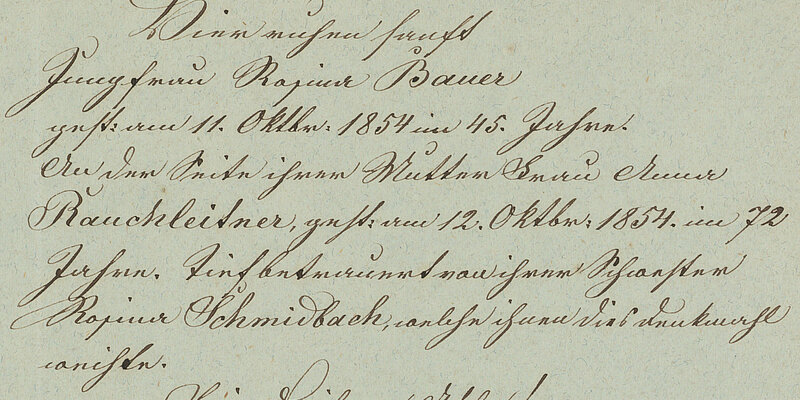 Hier ruhen sanft
Jungfrau Rosina Bauer
gest: am 11. Oktbr: 1854 im 45. Jahre.
An der Seite ihrer Mutter Frau Anna
Rauchleitner, gest: am 12. Oktbr: 1854. im 72
Jahre. Tiefbetrauert von ihrer Schwester
Rosina Schmidbach, welche ihnen dies Denkmahl
weihte.